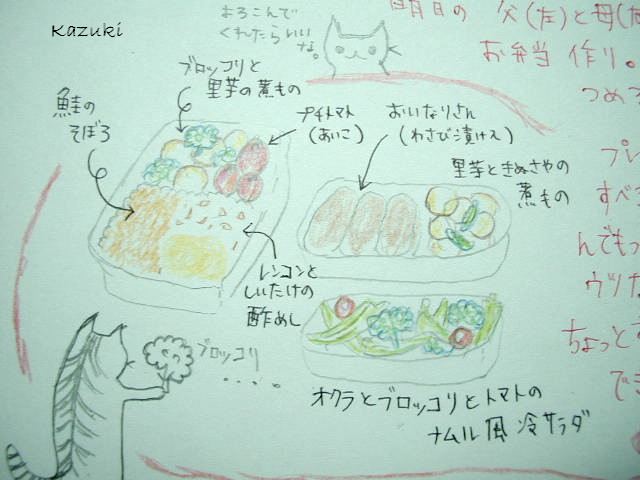 Kazuki
よろこんで
くれたらいい
な。
明日の 父(左)と母(
お弁当 作り。
つめ
プレ
すべ
んでもっ
ウツ
ちょっと
でき
ブロッコリと
里芋の煮もの
鮭の
そぼろ
プチトマト
(あいこ)
おいなりさん
(わさび漬け入)
里芋ときぬさやの
煮もの
レンコンと
しいたけの
酢めし
ブロッコリ
....
オクラとブロッコリとトマトの
ナムル風 冷サラダ